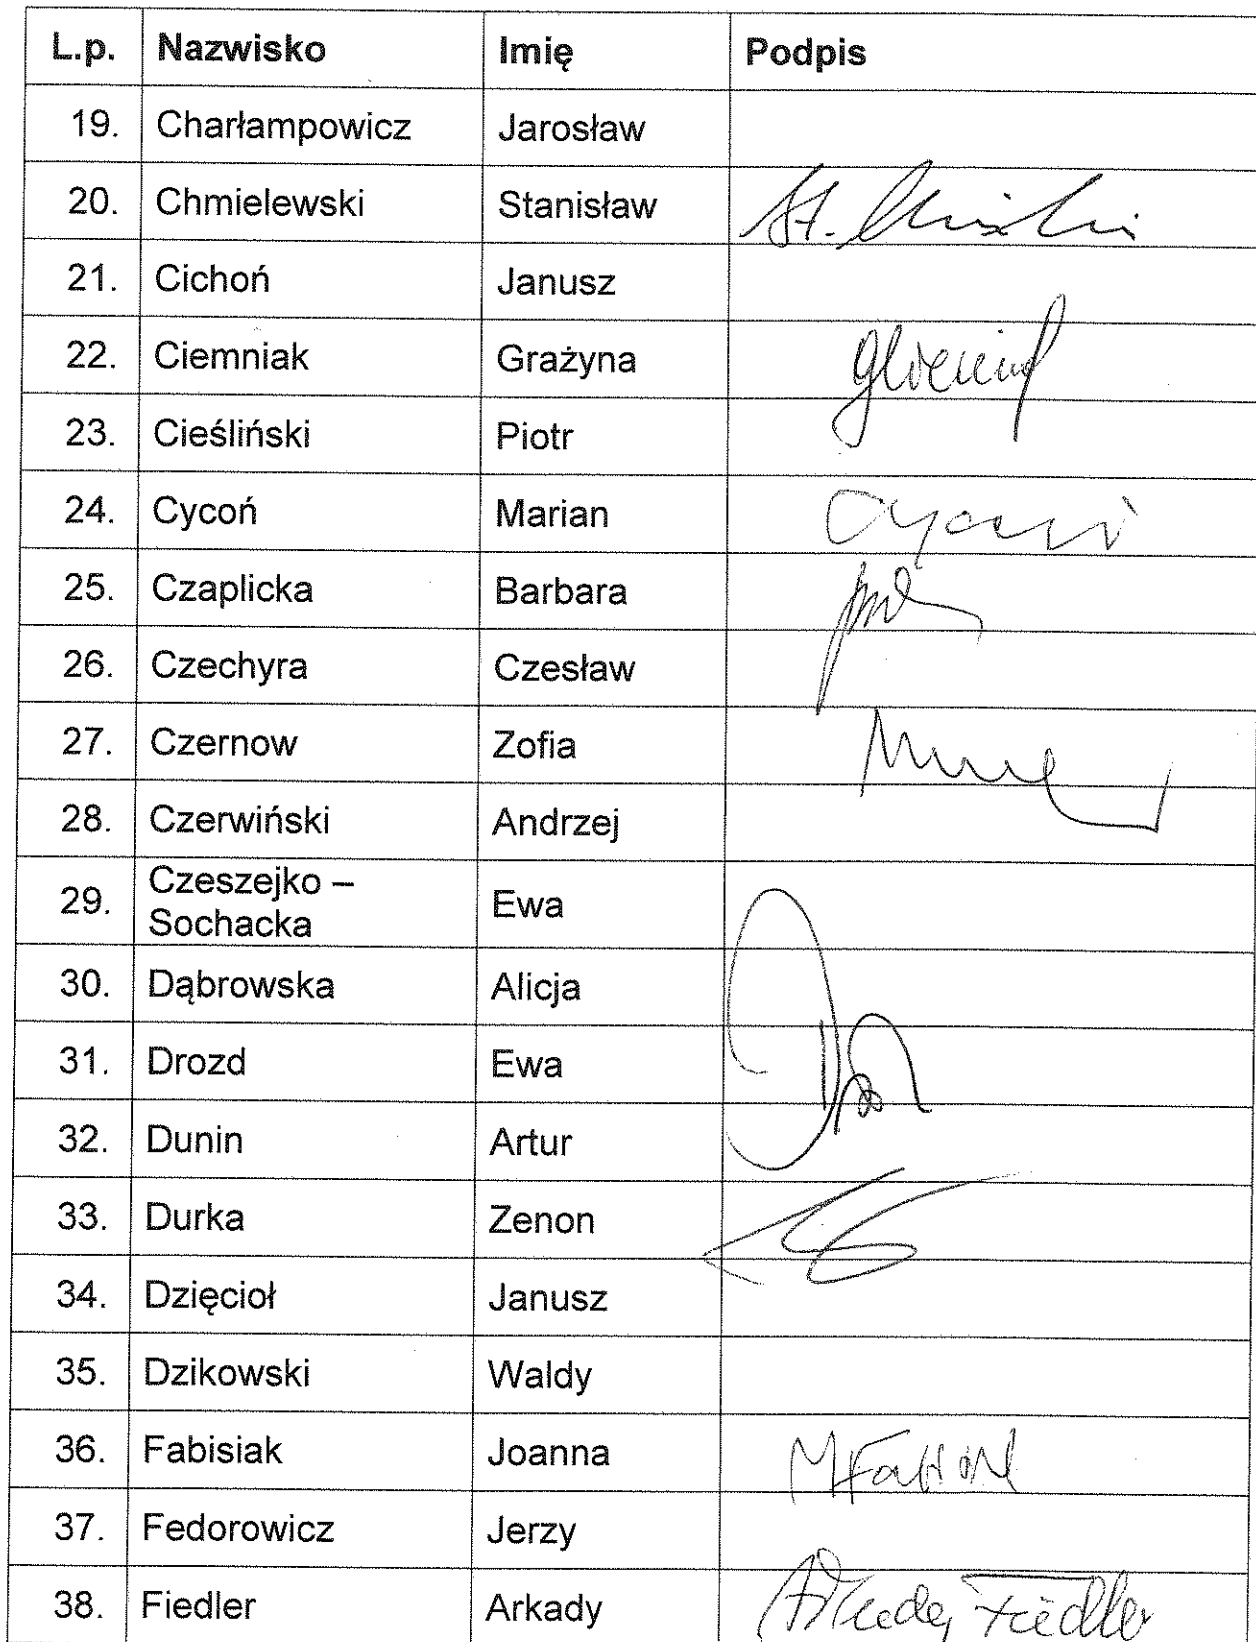 L.p. Nazwisko Imię Podpis
19. Charłampowicz Jarosław
20. Chmielewski Stanisław St.
21. Cichoń Janusz
22. Ciemniak Grażyna
23. Cieśliński Piotr
24. Cycoń Marian Cycoń
25. Czaplicka Barbara
26. Czechyra Czesław
27. Czernow Zofia
28. Czerwiński Andrzej
29. Czeszejko –
Sochacka Ewa
30. Dąbrowska Alicja
31. Drozd Ewa
32. Dunin Artur
33. Durka Zenon
34. Dzięcioł Janusz
35. Dzikowski Waldy
36. Fabisiak Joanna
37. Fedorowicz Jerzy
38. Fiedler Arkady Arkady Fiedler